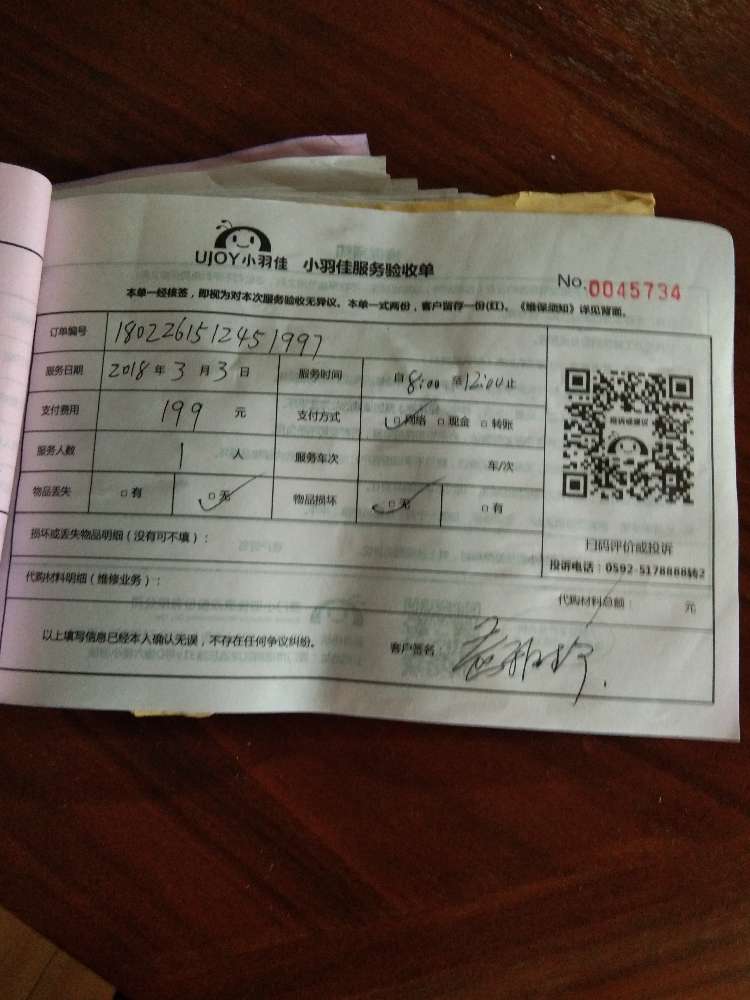 UJOY小羽佳 小羽佳服务验收单
No.0045734
本单一经接签，即视为对本次服务验收无异议。本单一式两份，客户留存一份(红)。《维保须知》详见背面。
订单编号 1802261512451997
服务日期 2018年3月3日 服务时间 自8:00至12:00止
支付费用 199元 支付方式 ☑网络 □现金 □转账
服务人数 1人 服务车次 车/次
物品丢失 □有 ☑无 物品损坏 ☑无 □有
投诉或建议
扫码评价或投诉
投诉电话：0592-5178888转2
损坏或丢失物品明细（没有可不填）：
代购材料明细（维修业务）：
代购材料总额： 元
以上填写信息已经本人确认无误，不存在任何争议纠纷。 客户签名